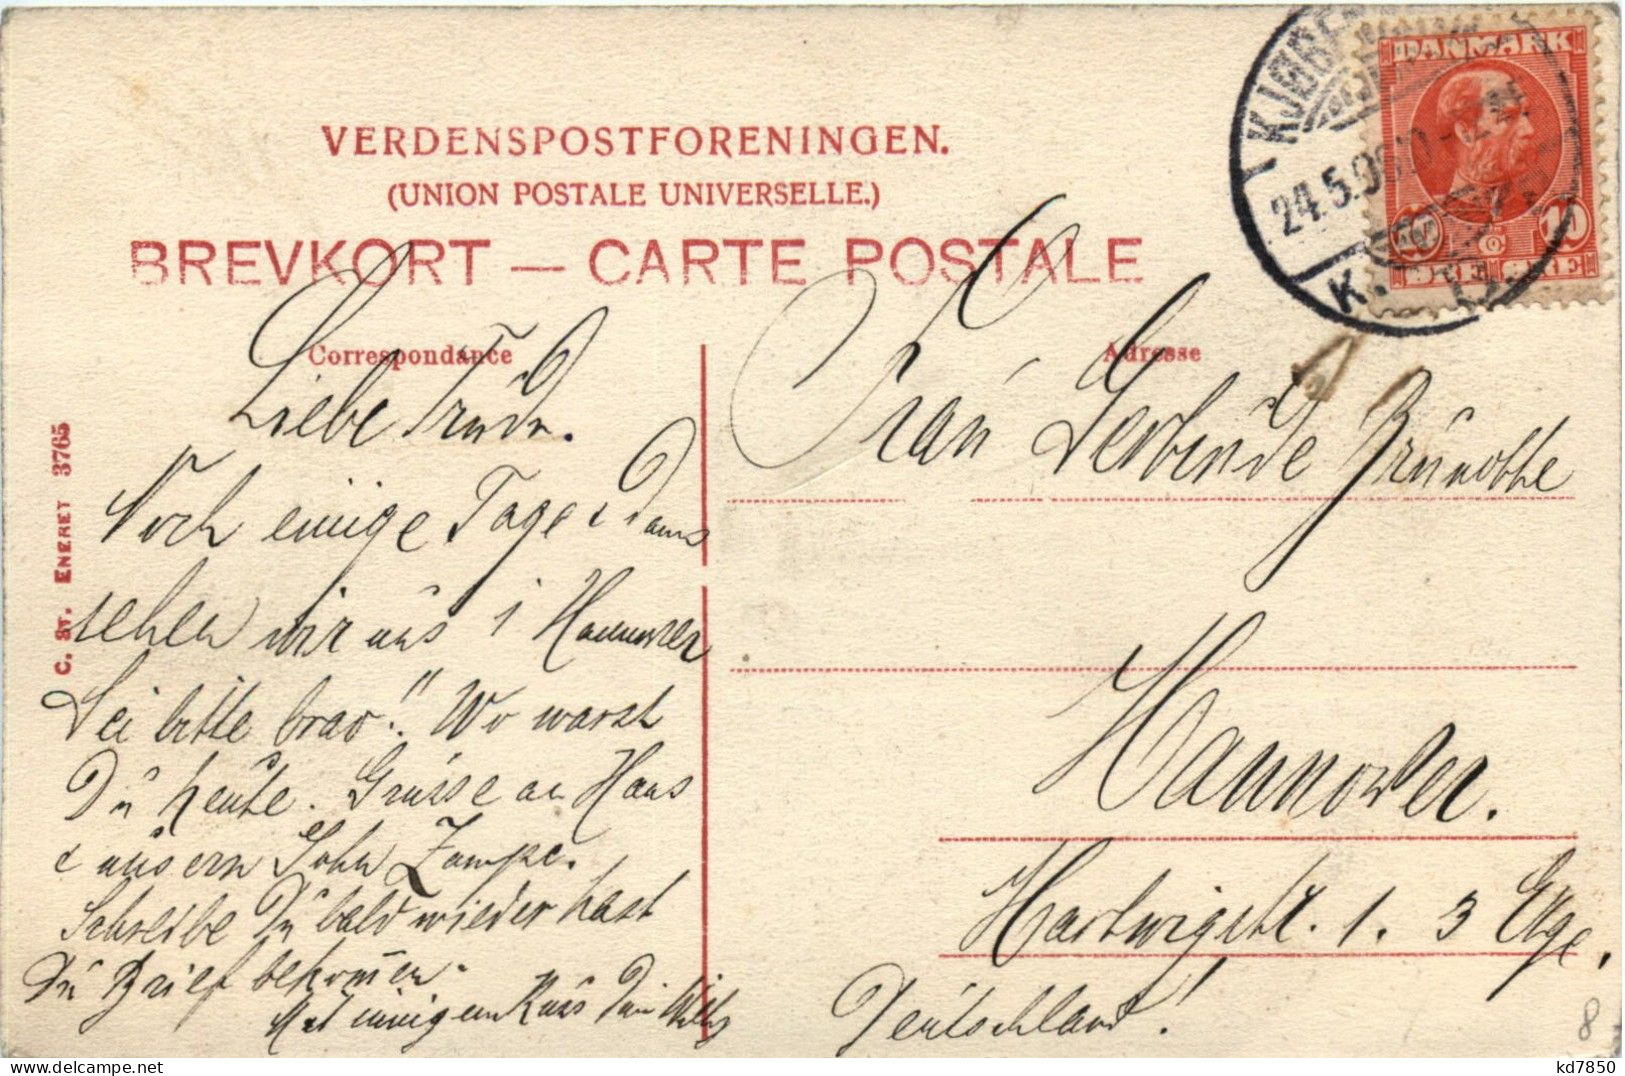 VERDENSPOSTFORENINGEN.
(UNION POSTALE UNIVERSELLE.)
BREVKORT — CARTE POSTALE
DANMARK
10 10
24.5.0
K.
Correspondance
Adresse
C. St. ENERET 3765
Liebe
Noch einige Tage & dann
sehen wir uns i Hannover
Sei bitte brav!! Wo warst
Du heute. Grüsse an Hans
& unsern Sohn
Schreibe Du bald wieder hast
Du Brief bekommen.
Mit innigem Kuss Dein Willy
Frau
Hannover.
Hartwigstr. 1. 3 Etge.
Deutschland!
8
kd7850